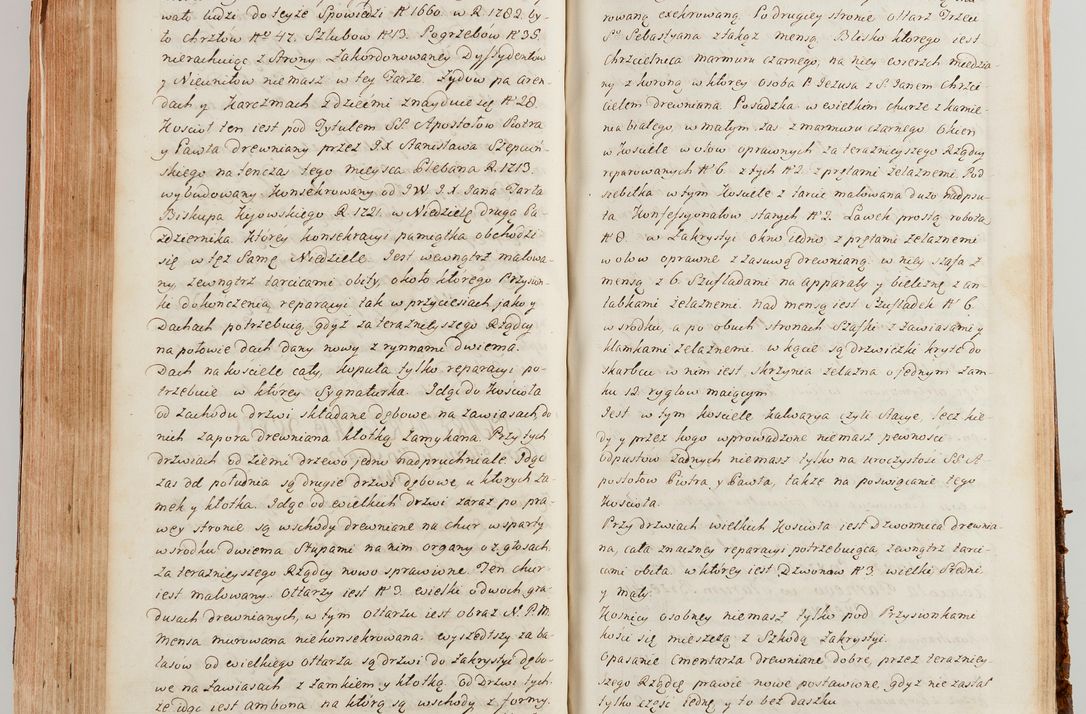 wało ludzi do teyże Spowiedzi N 1660. w R. 1782. by-
ło chrztow Nro 47. Szlubow N 13. Pogrzebow N 36
nierachuiąc z Strony Zakordonowaney Dyssydentow
y Nieunitow niemasz w tey Parze. Zydow na aren-
dach y karczmach z dziećmi znayduie się N 28.
Koscioł ten iest pod Tytułem SS. Apostołow Piotra
y Pawła drewniany przez JX Stanisława Szepcuń-
skiego natenczas tego mieysca Plebana R. 1713.
wybudowany Konsekrowany od JW. JX. Jana Tarła
Biskupa Kijowskiego R. 1721. w Niedzielę drugą Pa-
zdziernika ktorey konsekracyi pamiątka obchodzi
się w tęż samę Niedziele. Jest wewnątrz malowa-
ny, zewnątrz tarcicami obity, około ktorego Przysion-
ke dokonczenia reparacyi tak w przyciesach, jako y
Dachach potrzebuią, gdyż za teraznieyszego Rządcy
na połowie dach dany nowy z rynnami dwiema.
Dach na kosciele cały, kopuła tylko reparacyi po-
trzebuie w ktorey Sygnaturka. Idąc do Kosciola
od zachodu drzwi składane dębowe na zawiasach, do
nich zapora drewniana kłotką zamykana. Przy tych
drzwiach od ziemi drzewo jedno nadpruchniałe. Idąc
zas od południa są drugie drzwi dębowe, u ktorych za-
mek y kłotka. Idąc od wielkich drzwi zaraz po pra-
wey stronie są wschody drewniane na chur, wsparty
wsrodku dwiema Słupami na nim organy o 7. głosach
za teraznieyszego Rządcy nowo sprawione. Ten chur
iest malowany. Ołtarzy iest N 3. wielki o dwoch gra-
dusach drewnianych, w tym ołtarzu iest obraz N. P. M.
Mensa murowana niekonsekrowana. wyszedłszy za ba-
lasow od wielkiego ołtarza są drzwi do Zakrystyi dębo-
we na zawiasach z zamkiem y kłotką. Od drzwi tych-
że idąc iest ambona na ktorą są wschody z formy.
rowaną exekrowaną. Po drugiey stronie ołtarz Trzeci
Sgo Sebastyana z takąż mensą. Blisko ktorego iest
chrzcielnica marmuru czarnego, na niey wierzch miedzia-
ny z koroną w ktorey osoba P. Jezusa z S. Janem Chrzci-
cielem drewniana. Posadzka w wielkim churze z kamie-
nia białego, w małym zas z marmuru czarnego. Okien
w Kosciele w ołow oprawnych za teraznieyszego Rządcy
reparowanych N 6. z tych N 2. z prętami zelaznemi. Pod-
siebitka w tym Kosciele z tarcic malowana dużo nadpsu-
ta. Konfessyonałow starych N 2. Ławek prostą robotą
N 8. w Zakrystyi okno iedno z prętami zelaznemi
w ołow oprawne z zasuwą drewnianą. w niey szafa z
mensą z 6. Szufladami na apparaty y bieliznę z an-
tabkami zelaznemi. Nad mensą iest Szufladek N 6.
w srodku, a po obuch stronach Szafki z zawiasami y
klamkami zelaznemi. w kącie są drzwiczki kryte do
skarbcu w nim iest Skrzynia zelazna o jednym zam-
ku 12. ryglow maiącym.
Jest w tym kosciele Kalwarya czyli Stacye, lecz kie-
dy y przez kogo wprowadzone niemasz pewnosci
odpustow żadnych niemasz tylko na uroczystość SS. A-
postołow Piotra y Pawła, także na poświącanie tego
Kosciola.
Przy drzwiach wielkich Kosciola iest dzwonnica drewnia-
na, cała znaczney reparacyi potrzebuiąca zewnątrz tarci-
cami obita. w ktorey iest Dzwonow N 3. wielki sredni
y mały.
Kosnicy osobney niemasz tylko pod Przysionkami
kosci się mieszczą z Szkodą Zakrystyi.
Opasanie Cmentarza drewniane dobre, przez teraznie-
szego Rządcę prawie nowe postawione, gdyż nie zastał
tylko część jednę y to bez daszku.